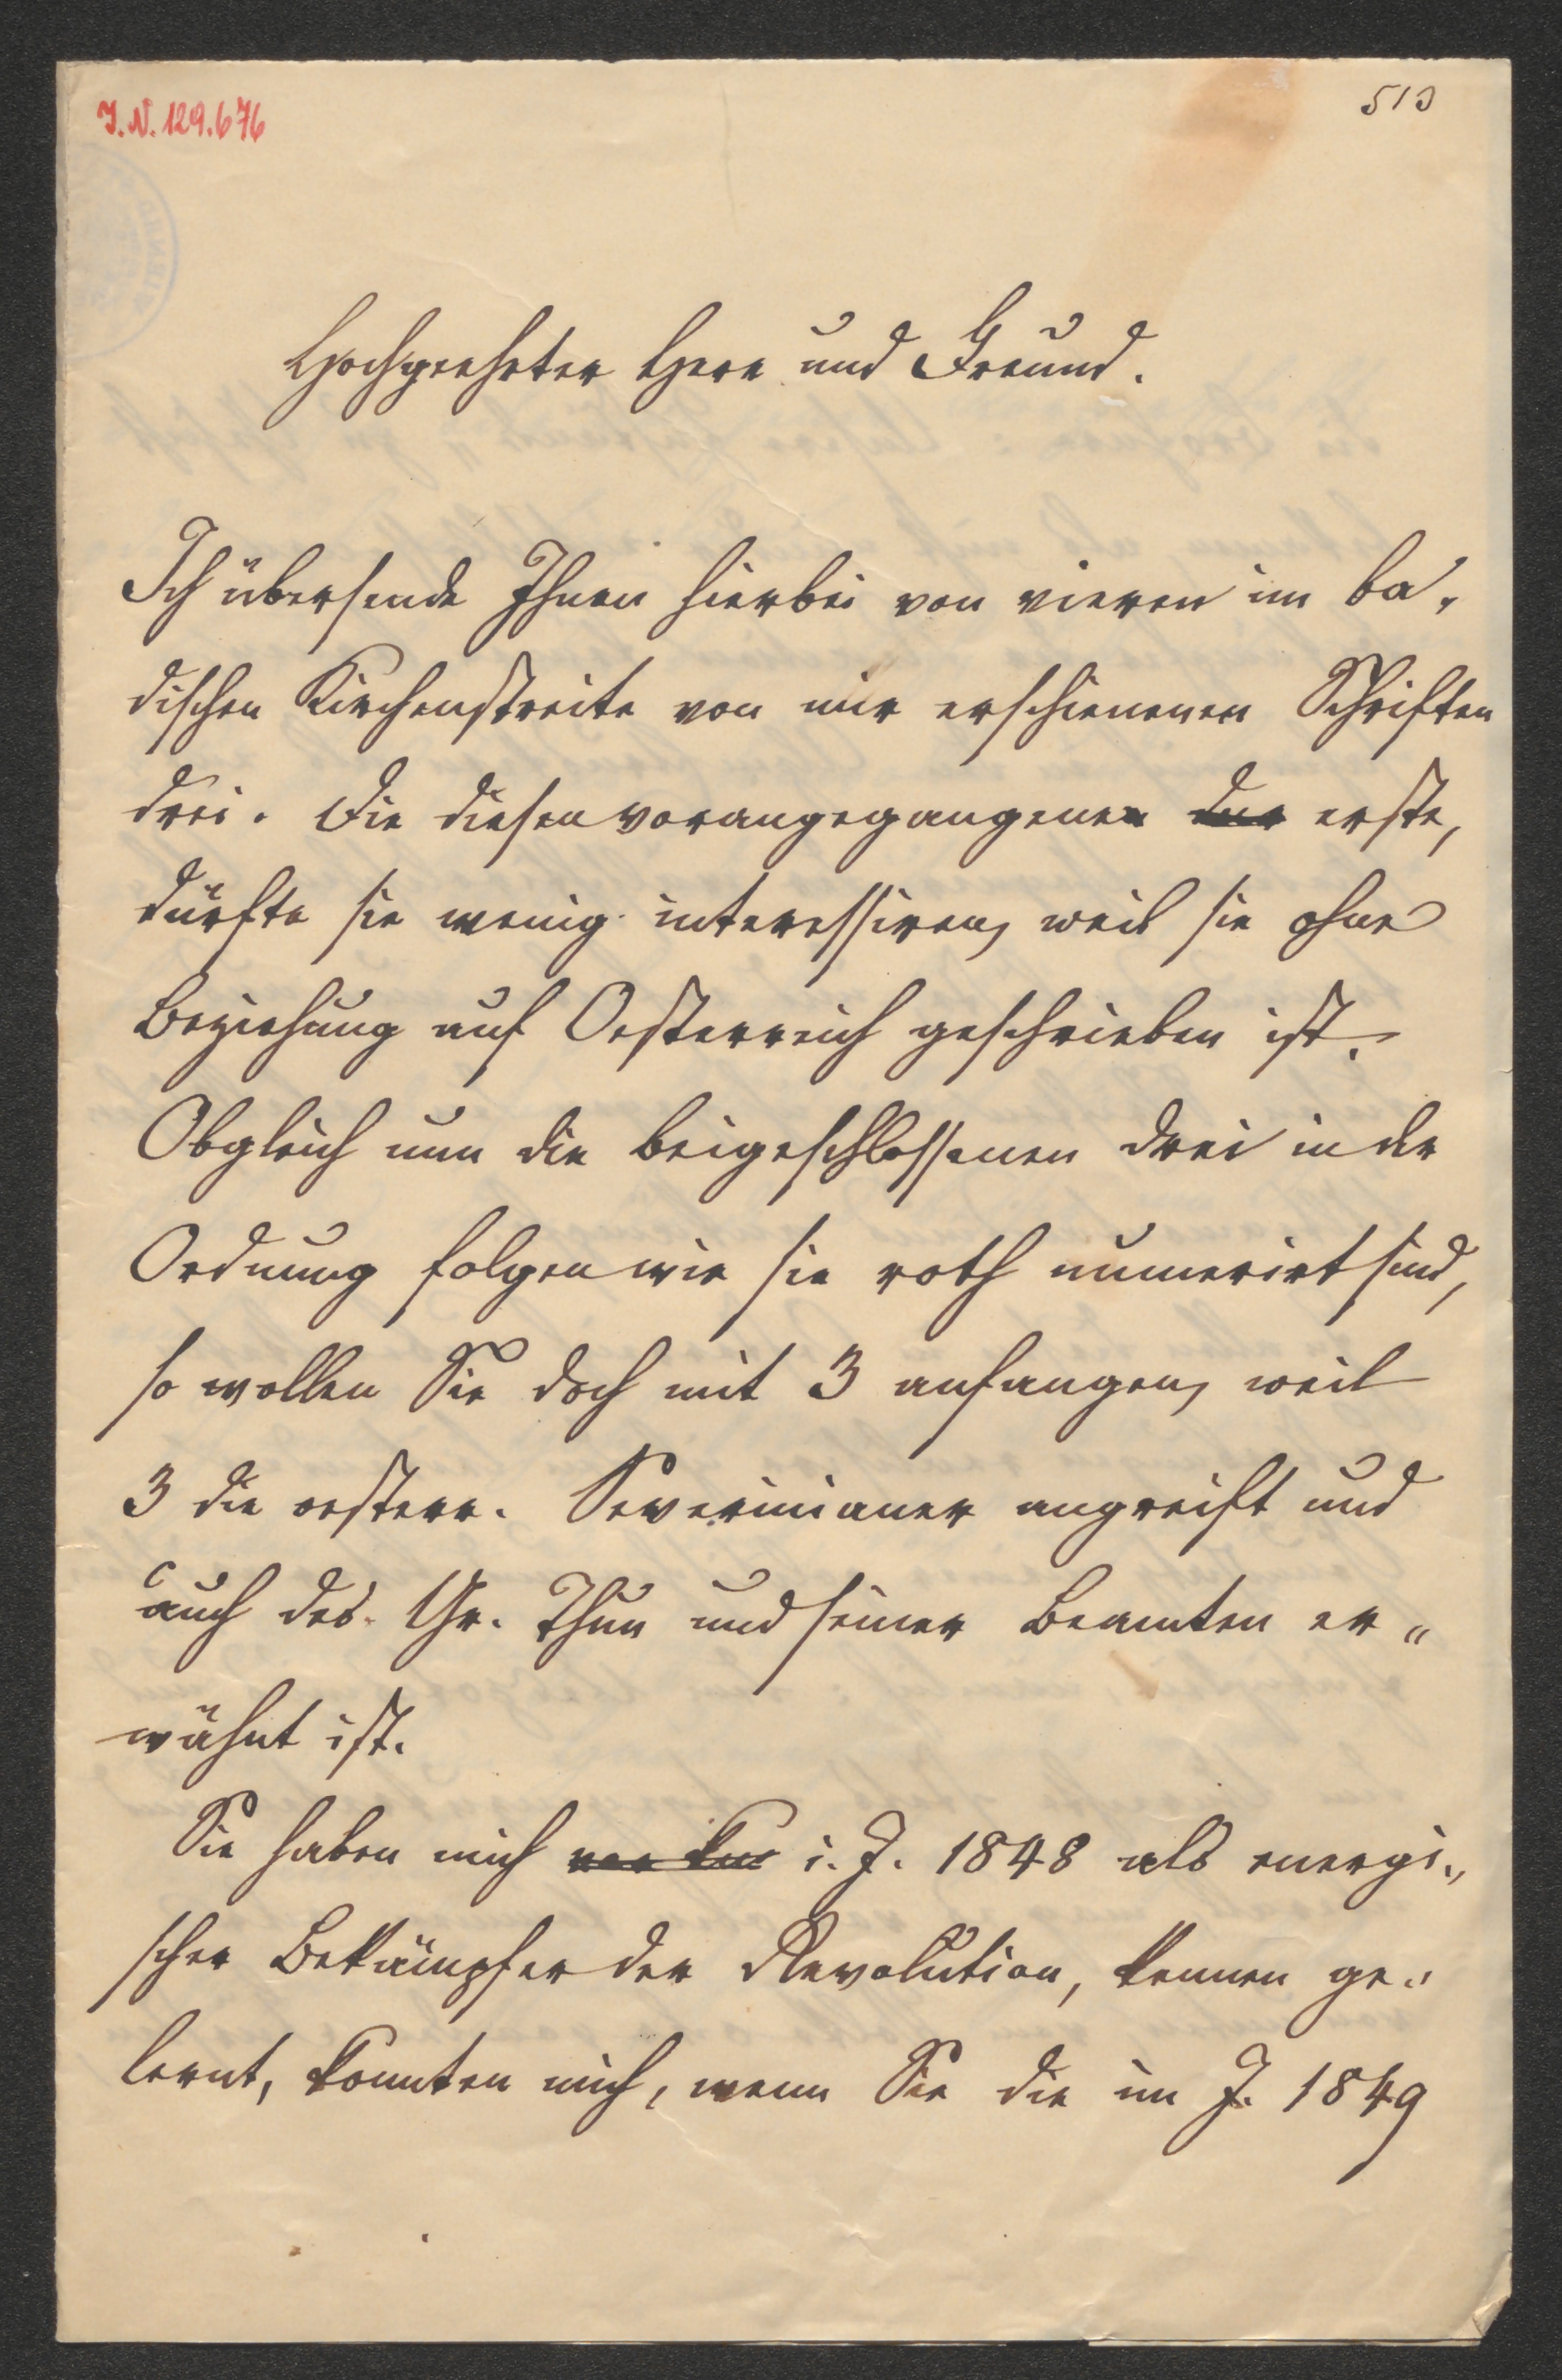 I.N. 129.676
513
Hochgeehrter Herr und Freund.
Ich übersende Ihnen hierbei von vieren im ba„
dischen Kirchenstreite von mir erschienenen Schriften
drei. Die diesen vorangegangene erste,
dürfte sie wenig interessiren, weil sie ohne
Beziehung auf Oesterreich geschrieben ist.
Obgleich nun die beigeschlossenen drei in der
Ordnung folgen wie sie roth numerirt sind,
so wollen Sie doch mit 3 anfangen, weil
3 die oesterr. Severinianer angreift und
auch des Gr. Thun und seiner Beamten er„
wähnt ist.
Sie haben mich i. J. 1848 als energi„
scher Bekämpfer der Revolution, kennen ge„
lernt, konnten mich, wenn Sie die im J. 1849